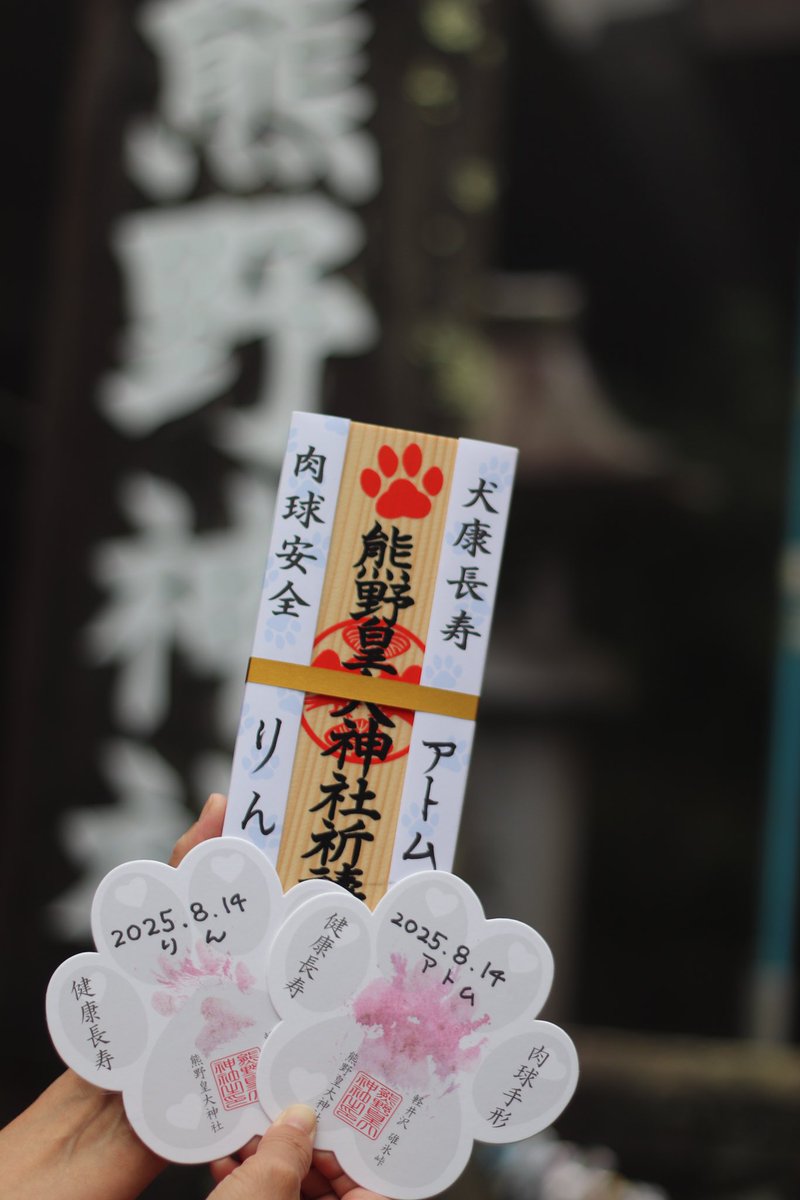 熊野神社
肉球安全
りん
熊野皇大神社祈祷
犬康長寿
アトム
2025.8.14
りん
健康長寿
熊野皇大神社
2025.8.14
アトム
健康長寿
肉球手形
軽井沢 碓氷峠
熊野皇大神社